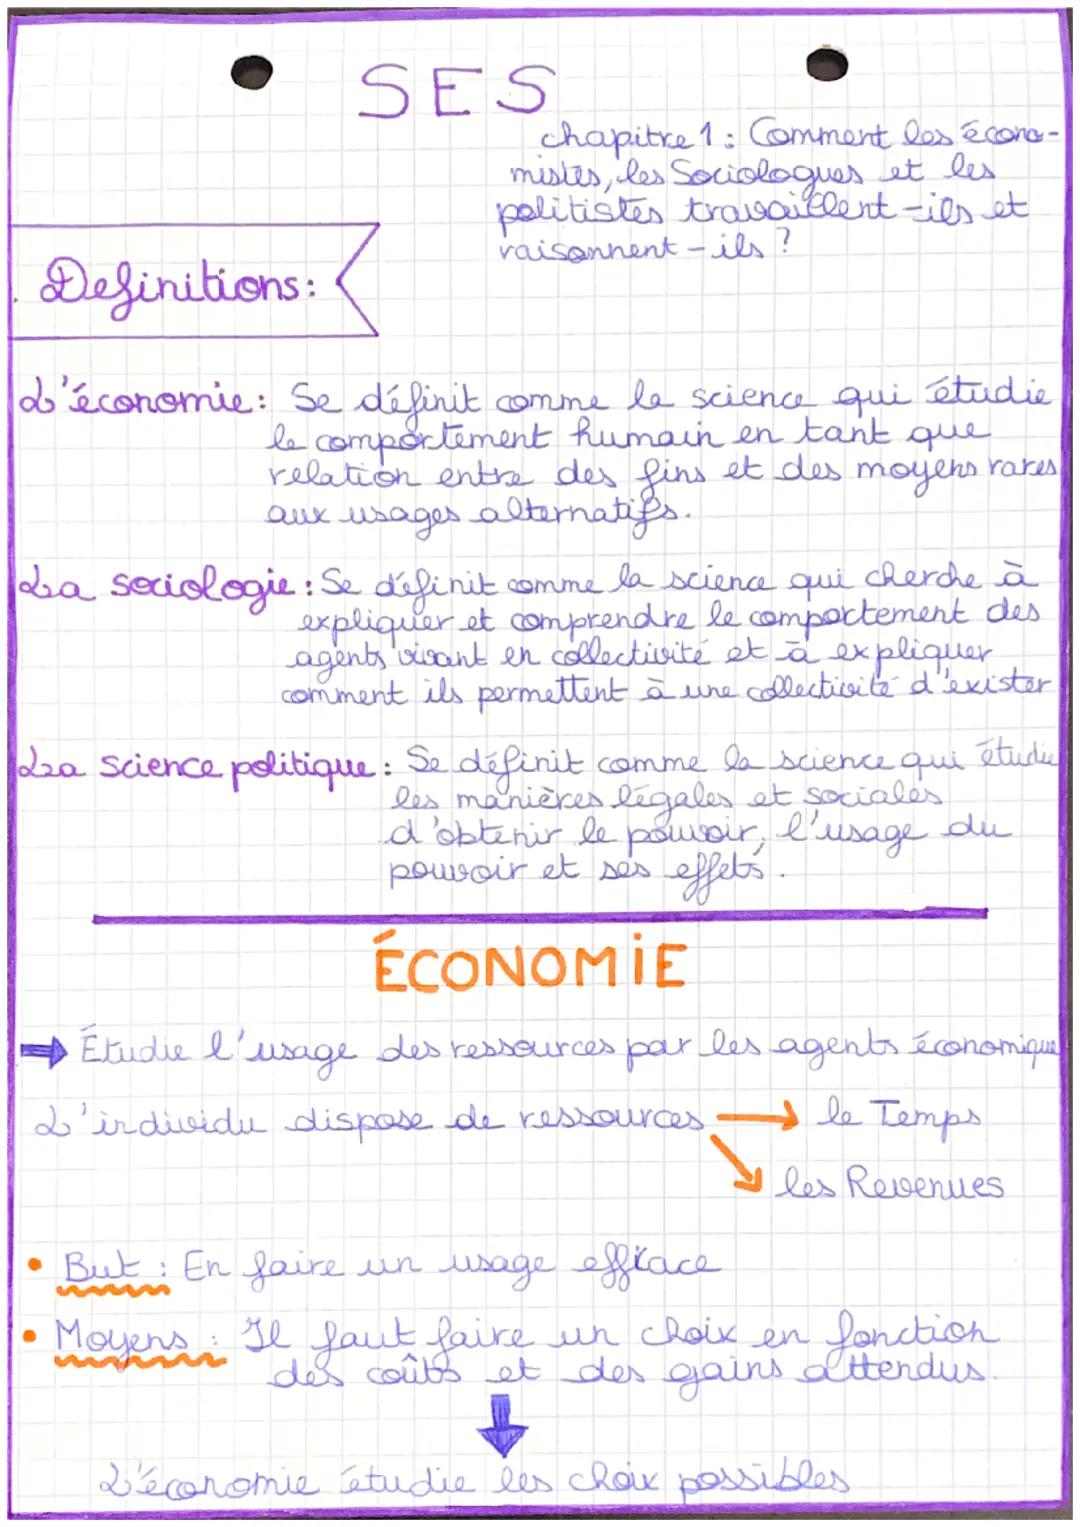 SES
chapitre 1 : Comment les écono-
mistes, les Sociologues et les
politistes travaillent-ils et
raisonnent-ils ?
Definitions :
L'économie : Se définit comme la science qui étudie
le comportement humain en tant que
relation entre des fins et des moyens rares
aux usages alternatifs.
La sociologie : Se définit comme la science qui cherche à
expliquer et comprendre le comportement des
agents vivant en collectivité et à expliquer
comment ils permettent à une collectivité d'exister
La science politique : Se définit comme la science qui étudie
les manières légales et sociales
d'obtenir le pouvoir, l'usage du
pouvoir et ses effets.
ÉCONOMiE
➡ Étudie l'usage des ressources par les agents économique
L'individu dispose de ressources → le Temps
↘ les Revenues
• But : En faire un usage efficace
• Moyens : Il faut faire un choix en fonction
des coûts et des gains attendus.
⬇
L'économie étudie les choix possibles